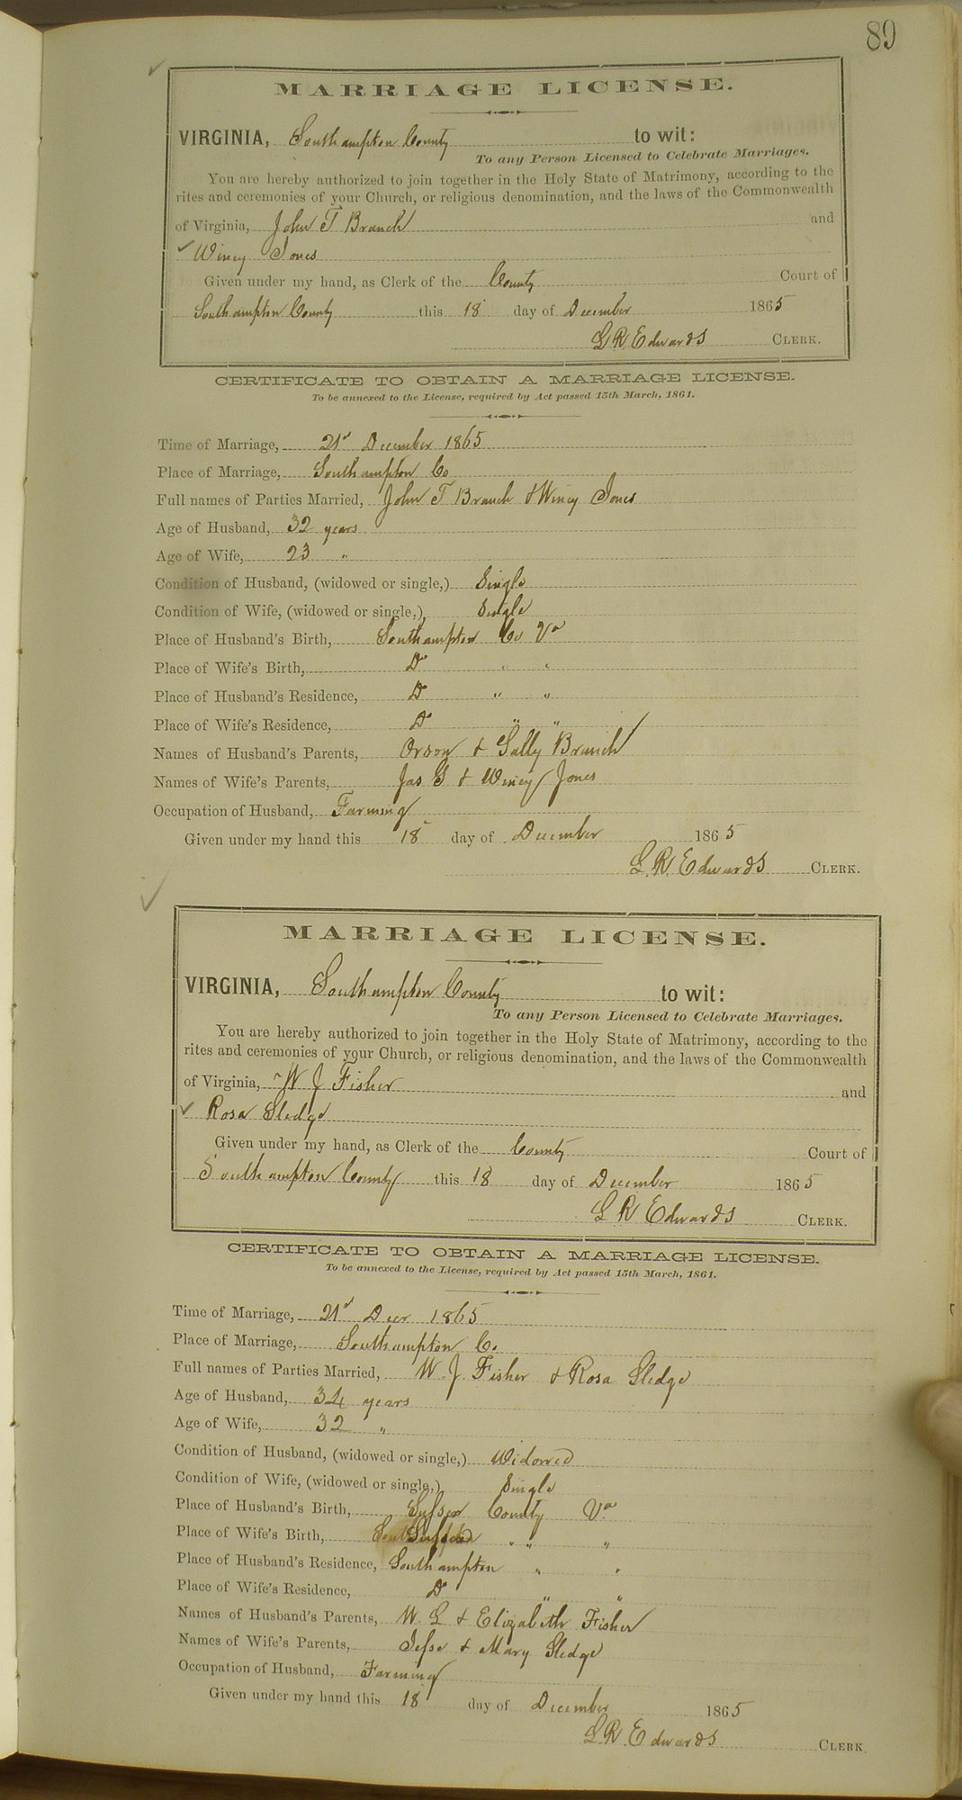 89
MARRIAGE LICENSE.
VIRGINIA, Southampton County to wit:
To any Person Licensed to Celebrate Marriages.
You are hereby authorized to join together in the Holy State of Matrimony, according to the
rites and ceremonies of your Church, or religious denomination, and the laws of the Commonwealth
of Virginia, John T Branch and
Winey Jones
Given under my hand, as Clerk of the County Court of
Southampton County this 18 day of December 1865
L R Edwards CLERK.
CERTIFICATE TO OBTAIN A MARRIAGE LICENSE.
To be annexed to the License, required by Act passed 15th March, 1861.
Time of Marriage, 21st December 1865
Place of Marriage, Southampton Co
Full names of Parties Married, John T Branch & Winey Jones
Age of Husband, 32 years
Age of Wife, 23 "
Condition of Husband, (widowed or single,) Single
Condition of Wife, (widowed or single,) Single
Place of Husband's Birth, Southampton Co Va
Place of Wife's Birth, Do " "
Place of Husband's Residence, Do " "
Place of Wife's Residence, Do " "
Names of Husband's Parents, Orson & Sally Branch
Names of Wife's Parents, Jas G & Winey Jones
Occupation of Husband, Farming
Given under my hand this 18 day of December 1865
L. R. Edwards CLERK.
MARRIAGE LICENSE.
VIRGINIA, Southampton County to wit:
To any Person Licensed to Celebrate Marriages.
You are hereby authorized to join together in the Holy State of Matrimony, according to the
rites and ceremonies of your Church, or religious denomination, and the laws of the Commonwealth
of Virginia, W J Fisher and
Rosa Sledge
Given under my hand, as Clerk of the County Court of
Southampton County this 18 day of December 1865
L R Edwards CLERK.
CERTIFICATE TO OBTAIN A MARRIAGE LICENSE.
To be annexed to the License, required by Act passed 15th March, 1861.
Time of Marriage, 21st Decr 1865
Place of Marriage, Southampton Co.
Full names of Parties Married, W. J. Fisher & Rosa Sledge
Age of Husband, 34 years
Age of Wife, 32 "
Condition of Husband, (widowed or single,) Widowed
Condition of Wife, (widowed or single,) Single
Place of Husband's Birth, Sussex County Va
Place of Wife's Birth, " " "
Place of Husband's Residence, Southampton " "
Place of Wife's Residence, Do " "
Names of Husband's Parents, W. L & Elizabeth Fisher
Names of Wife's Parents, Jesse & Mary Sledge
Occupation of Husband, Farming
Given under my hand this 18 day of December 1865
L. R. Edwards CLERK